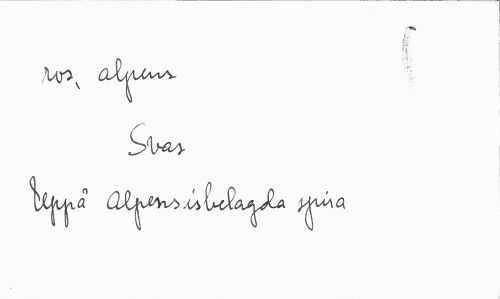 ros, alpens
Svas
Uppå alpens isbelagda spira